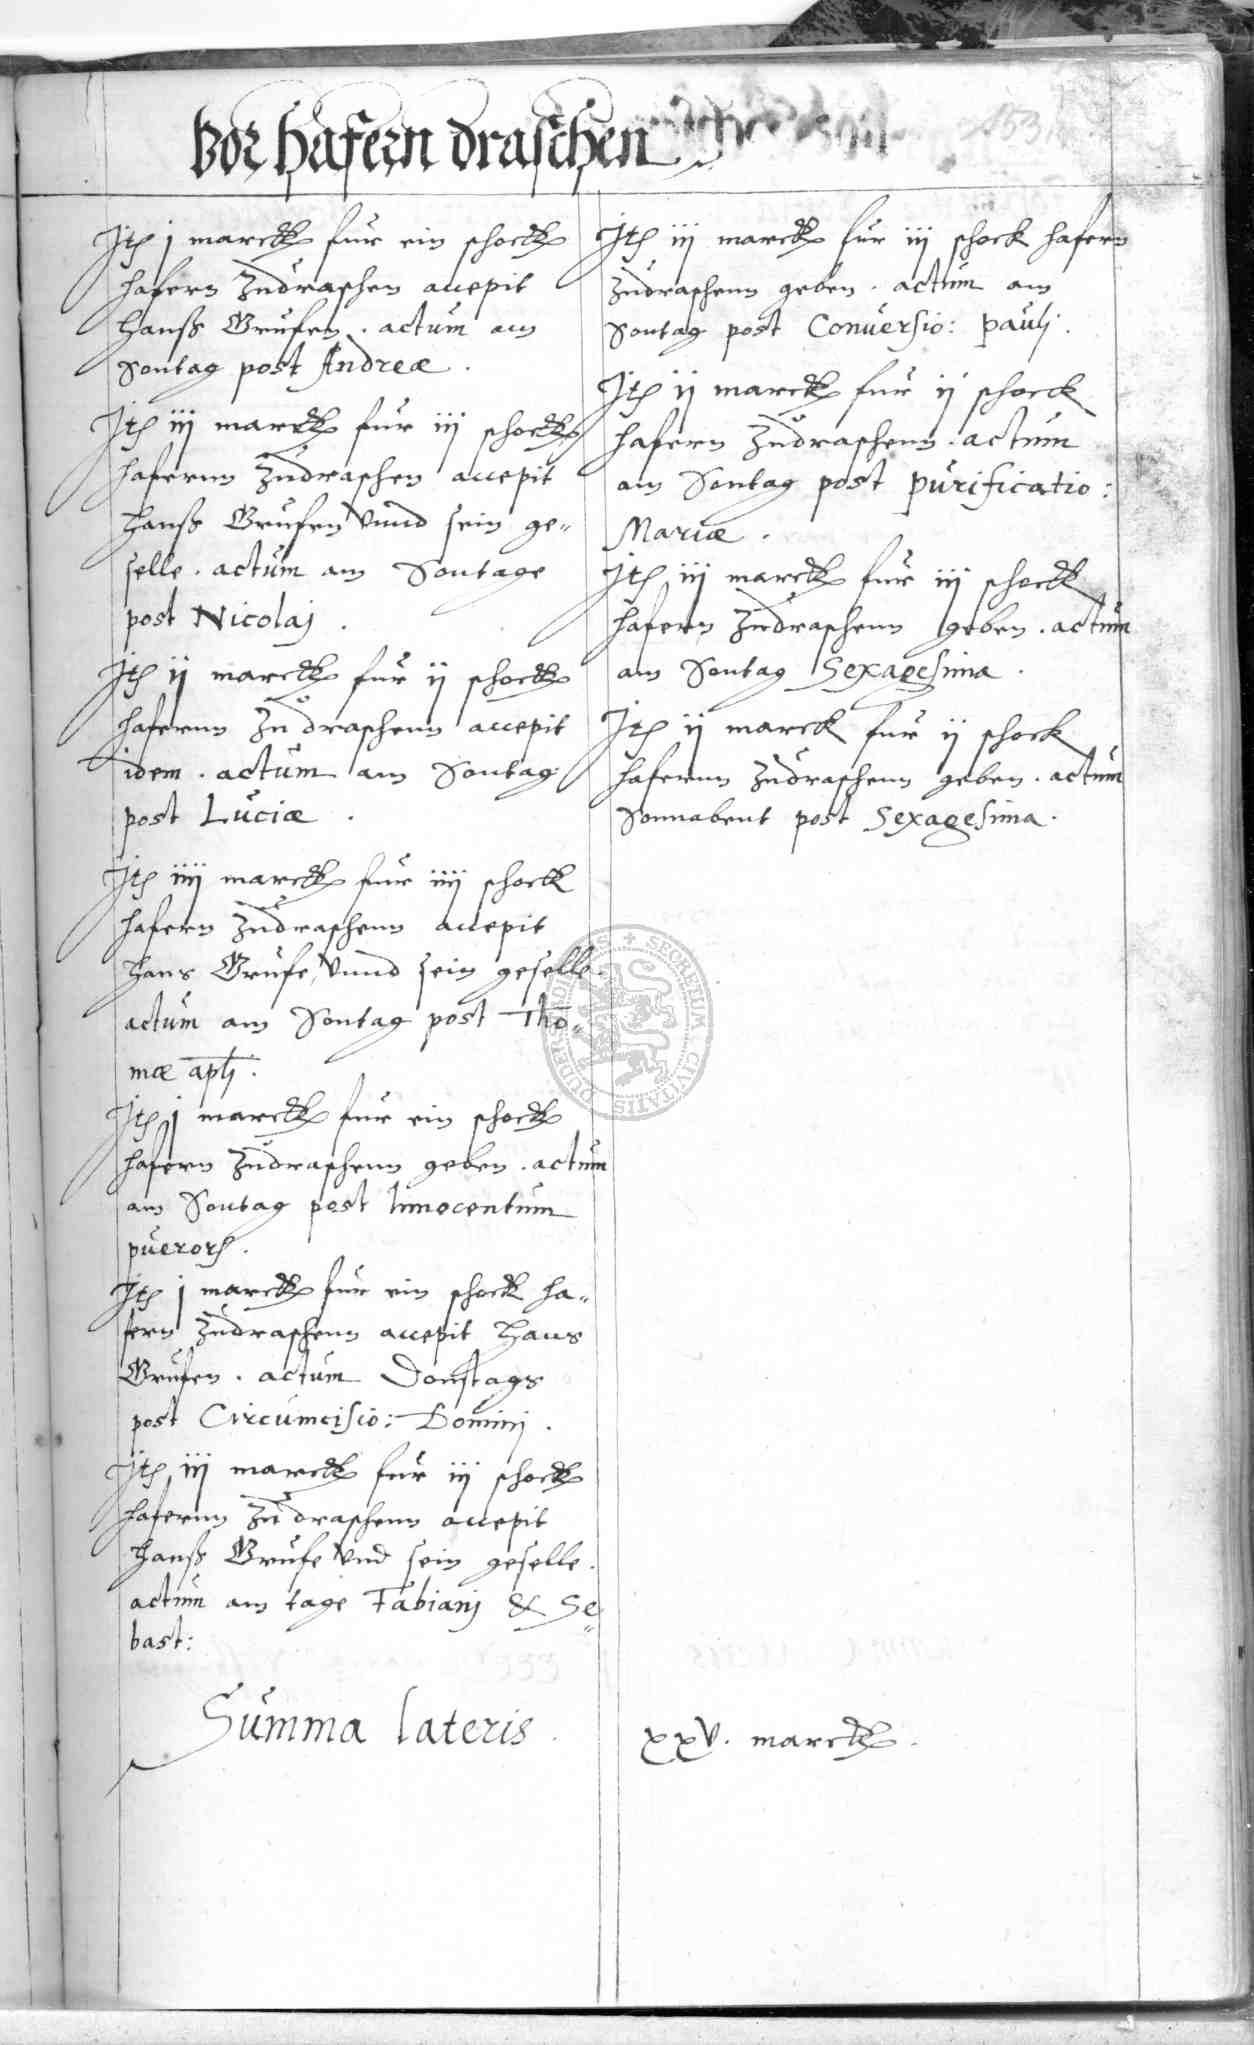 Vor hafern draschen
153
Jtȩ j marckȩ fur ein schockȩ
hafern zudraschen accepit
Hanß Grufen . actum am
Sontag post Andreæ .
Jtȩ iij marckȩ fur iij schockȩ
hafernn zudraschen accepit
Hanß Grufen vnnd sein ge„
selle . actum am Sontage
post Nicolaj .
Jtȩ ij marckȩ fur ij schockȩ
hafernn zu draschenn accepit
idem . actum am Sontag
post Luciæ .
Jtȩ iiij marckȩ fur iiij schock
hafern zudraschenn accepit
Hans Grufe vnnd sein geselle .
actum am Sontag post Tho„
mæ apli .
Jtȩ j marckȩ fur ein schockȩ
hafern zudraschenn geben . actum
am Sontag post Innocentum
puerorȩ .
Jtȩ j marckȩ fur ein schock ha„
fern zudraschenn accepit Hans
Grufen . actum Donstags
post Circumcisio: Dominj .
Jtȩ iij marckȩ fur iij schockȩ
hafernn zu draschenn accepit
Hanß Grufe vnd sein geselle .
actum am tage Fabianj & Se„
bast:
Jtȩ iij marckȩ fur iij schock hafern
zudraschenn geben . actum am
Sontag post Conuersio: Paulj .
Jtȩ ij marckȩ fur ij schock
hafern zudraschenn . actum
am Sontag post purificatio:
Mariæ .
Jtȩ iij marckȩ fur iij schock
hafern zudraschenn geben . actum
am Sontag Sexagesima .
Jtȩ ij marck fur ij schock
hafernn zudraschenn geben . actum
Sonnabent post Sexagesima .
Summa lateris . xxv . marckȩ .
SECRETUM CIVITATIS DUDERSTADIENSIS